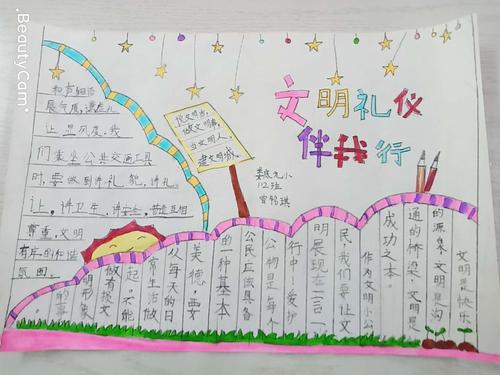 BeautyCam
文明礼仪
伴我行
说文明话,
做文明事,
当文明人,
建文明城。
112班
和声细语
展气度,谦虚礼
让显风度。我
们乘坐公共交通工具
时,要做到讲礼貌,讲礼
让,讲卫生,讲安全,营造互相
尊重,文明
有序的和谐
氛围。
文明是快乐
的源泉,文明是沟
通的桥梁,文明是
成功之本。
作为文明小公
民,我们要让文
明展现在一言一
行中。爱护
公物是每个
公民应该具备
的一种基本
美德,要
从每天的日
常生活做
起。不能
做有损文
明形象
的事